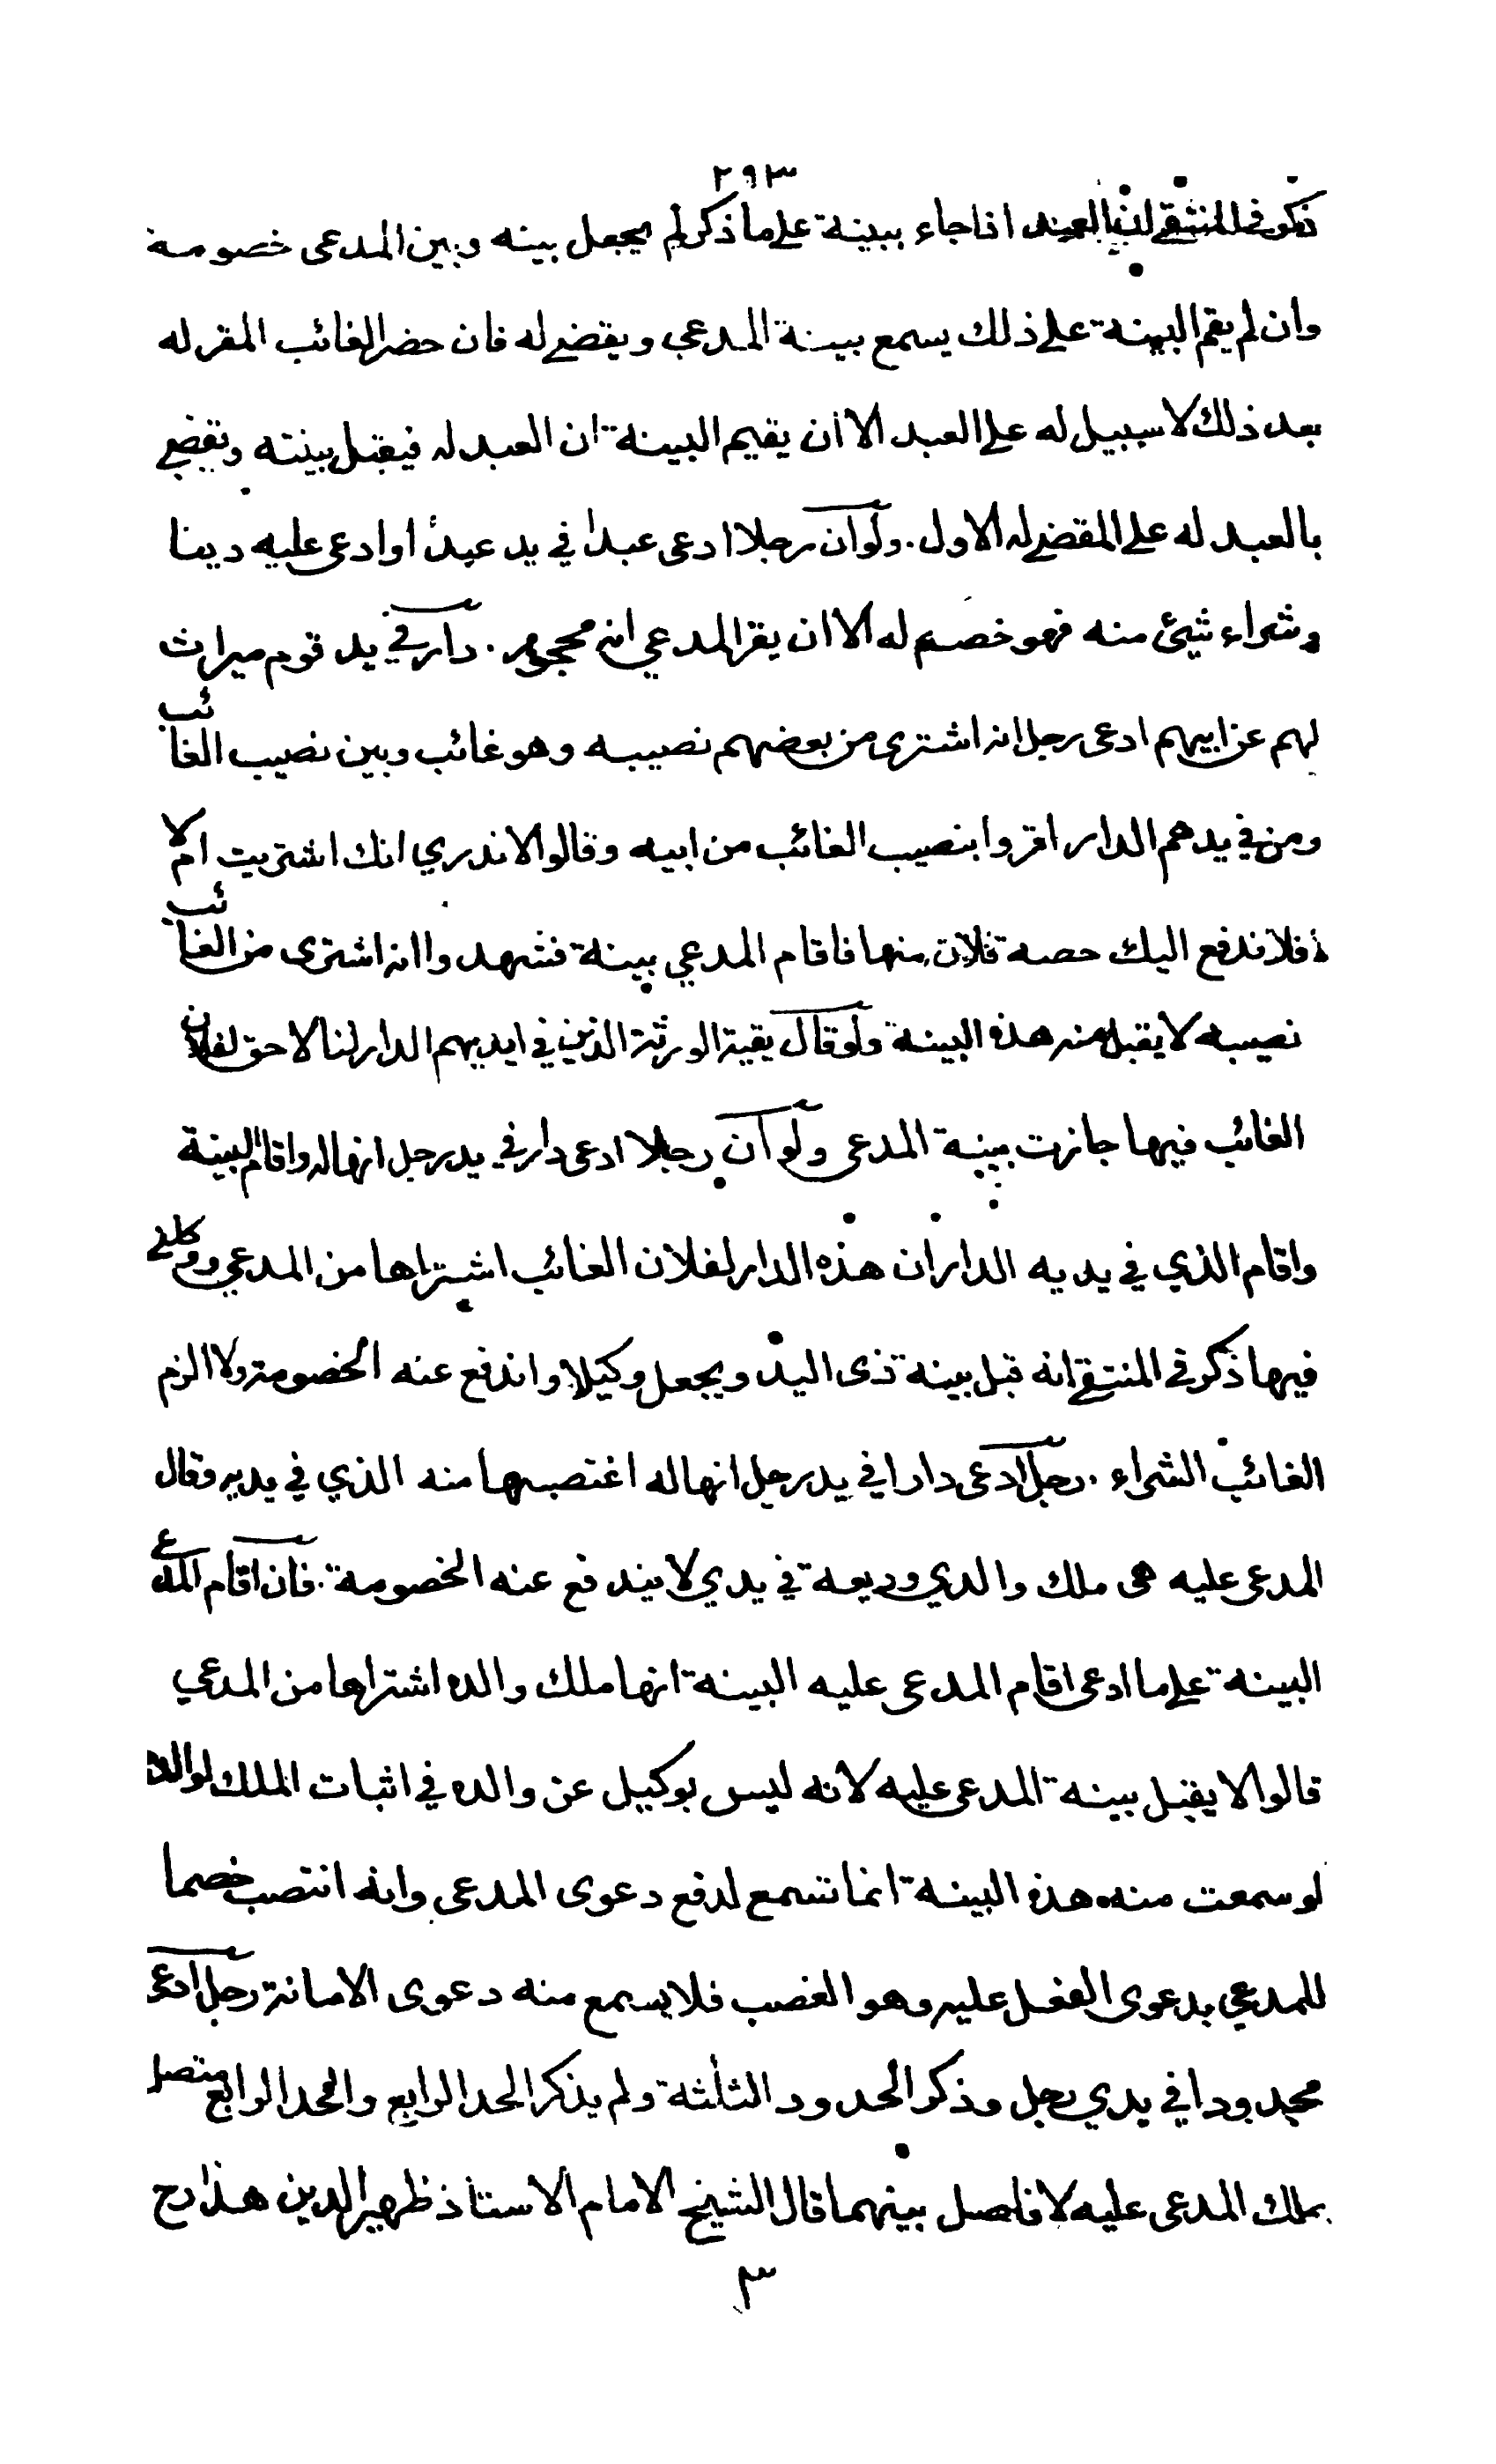 ٢٩٣
ذكر في المنتقى ان العبد اذا جاء ببينة على ما ذكر لم يجعل بينه وبين المدعى خصومة
وان لم يقم البينة على ذلك يسمع بينة المدعي ويقضى له فان حضر الغائب المقر له
بعد ذلك لا سبيل له على العبد الا ان يقيم البينة ان العبد له فيقبل بينته ويقضى
بالعبد له على المقضى له الاول . ولو ان رجلا ادعى عبدا في يد عبد أو ادعى عليه دينا
وشراء شيئ منه فهو خصم له الا ان يقر المدعي انه محجور . دار في يد قوم ميراث
لهم عن ابيهم ادعى رجل انه اشترى من بعضهم نصيبه وهو غائب وبين نصيب الغائب
ومن في يدهم الدار اقروا بنصيب الغائب من ابيه وقالوا لا ندري انك اشتريت ام لا
فلا ندفع اليك حصة فلان منها فاقام المدعي بينة فشهدوا انه اشترى من الغائب
نصيبه لا يقبل منه هذه البينة ولو قال بقية الورثة الذين في ايديهم الدار لنا لا حق لفلان
الغائب فيها جازت بينة المدعى ولو ان رجلا ادعى دار في يد رجل انها له واقام البينة
واقام الذي في يديه الدار ان هذه الدار لفلان الغائب اشتراها من المدعي ووكلني
فيها ذكر في المنتقى انه قبل بينة ذى اليد ويجعل وكيلا واندفع عنه الخصومة ولا الزم
الغائب الشراء . رجل ادعى دارا في يد رجل انها له اغتصبها منه الذي في يديه وقال
المدعى عليه هى ملك والدي وديعة في يدي لا يندفع عنه الخصومة . فان اقام المدعى
البينة على ما ادعى اقام المدعى عليه البينة انها ملك والده اشتراها من المدعي
قالوا لا يقبل بينة المدعى عليه لانه ليس بوكيل عن والده في اثبات الملك لوالده
لو سمعت منه هذه البينة انما تسمع لدفع دعوى المدعى وانه انتصب خصما
للمدعي بدعوى الفعل عليه وهو الغصب فلا يسمع منه دعوى الامانة رجل ادعى
محدودا في يدي رجل وذكر الحدود الثلثة ولم يذكر الحد الرابع والحد الرابع متصل
بملك المدعى عليه لا فاصل بينهما قال الشيخ الامام الاستاذ ظهير الدين هذا رح
٣